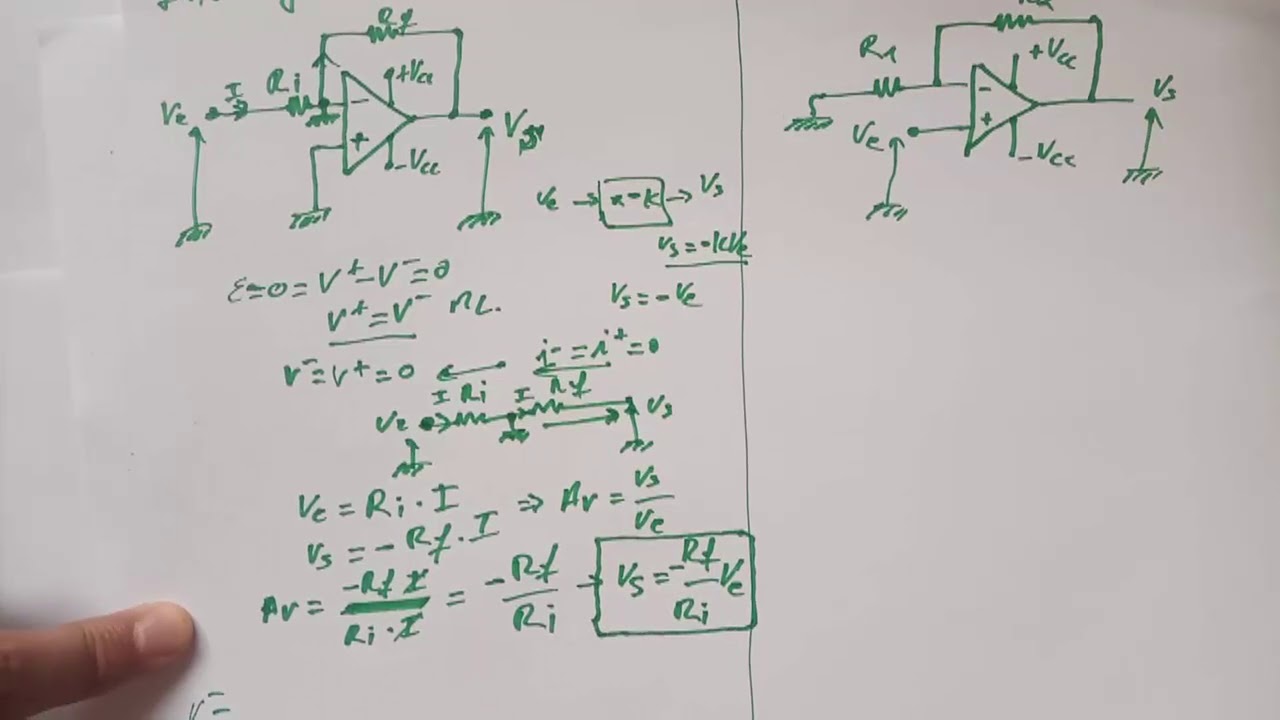 Rf
+Vcc
I Ri
Ve
-
+
-Vcc
Ve → x-k → Vs
Vs = -kVe
ε=0 = V⁺-V⁻ = 0
V⁺ = V⁻
Vs = -Ve
V⁻ = V⁺ = 0
i⁻ = i⁺ = 0
I Ri I Rf
Ve Vs
Ve = Ri · I ⇒ Av = Vs/Ve
Vs = - Rf · I
Av = -Rf I/Ri · I = -Rf/Ri → Vs = -Rf/Ri Ve
V⁻ =
R1
+Vcc
-
Vs
Ve
+
-Vcc